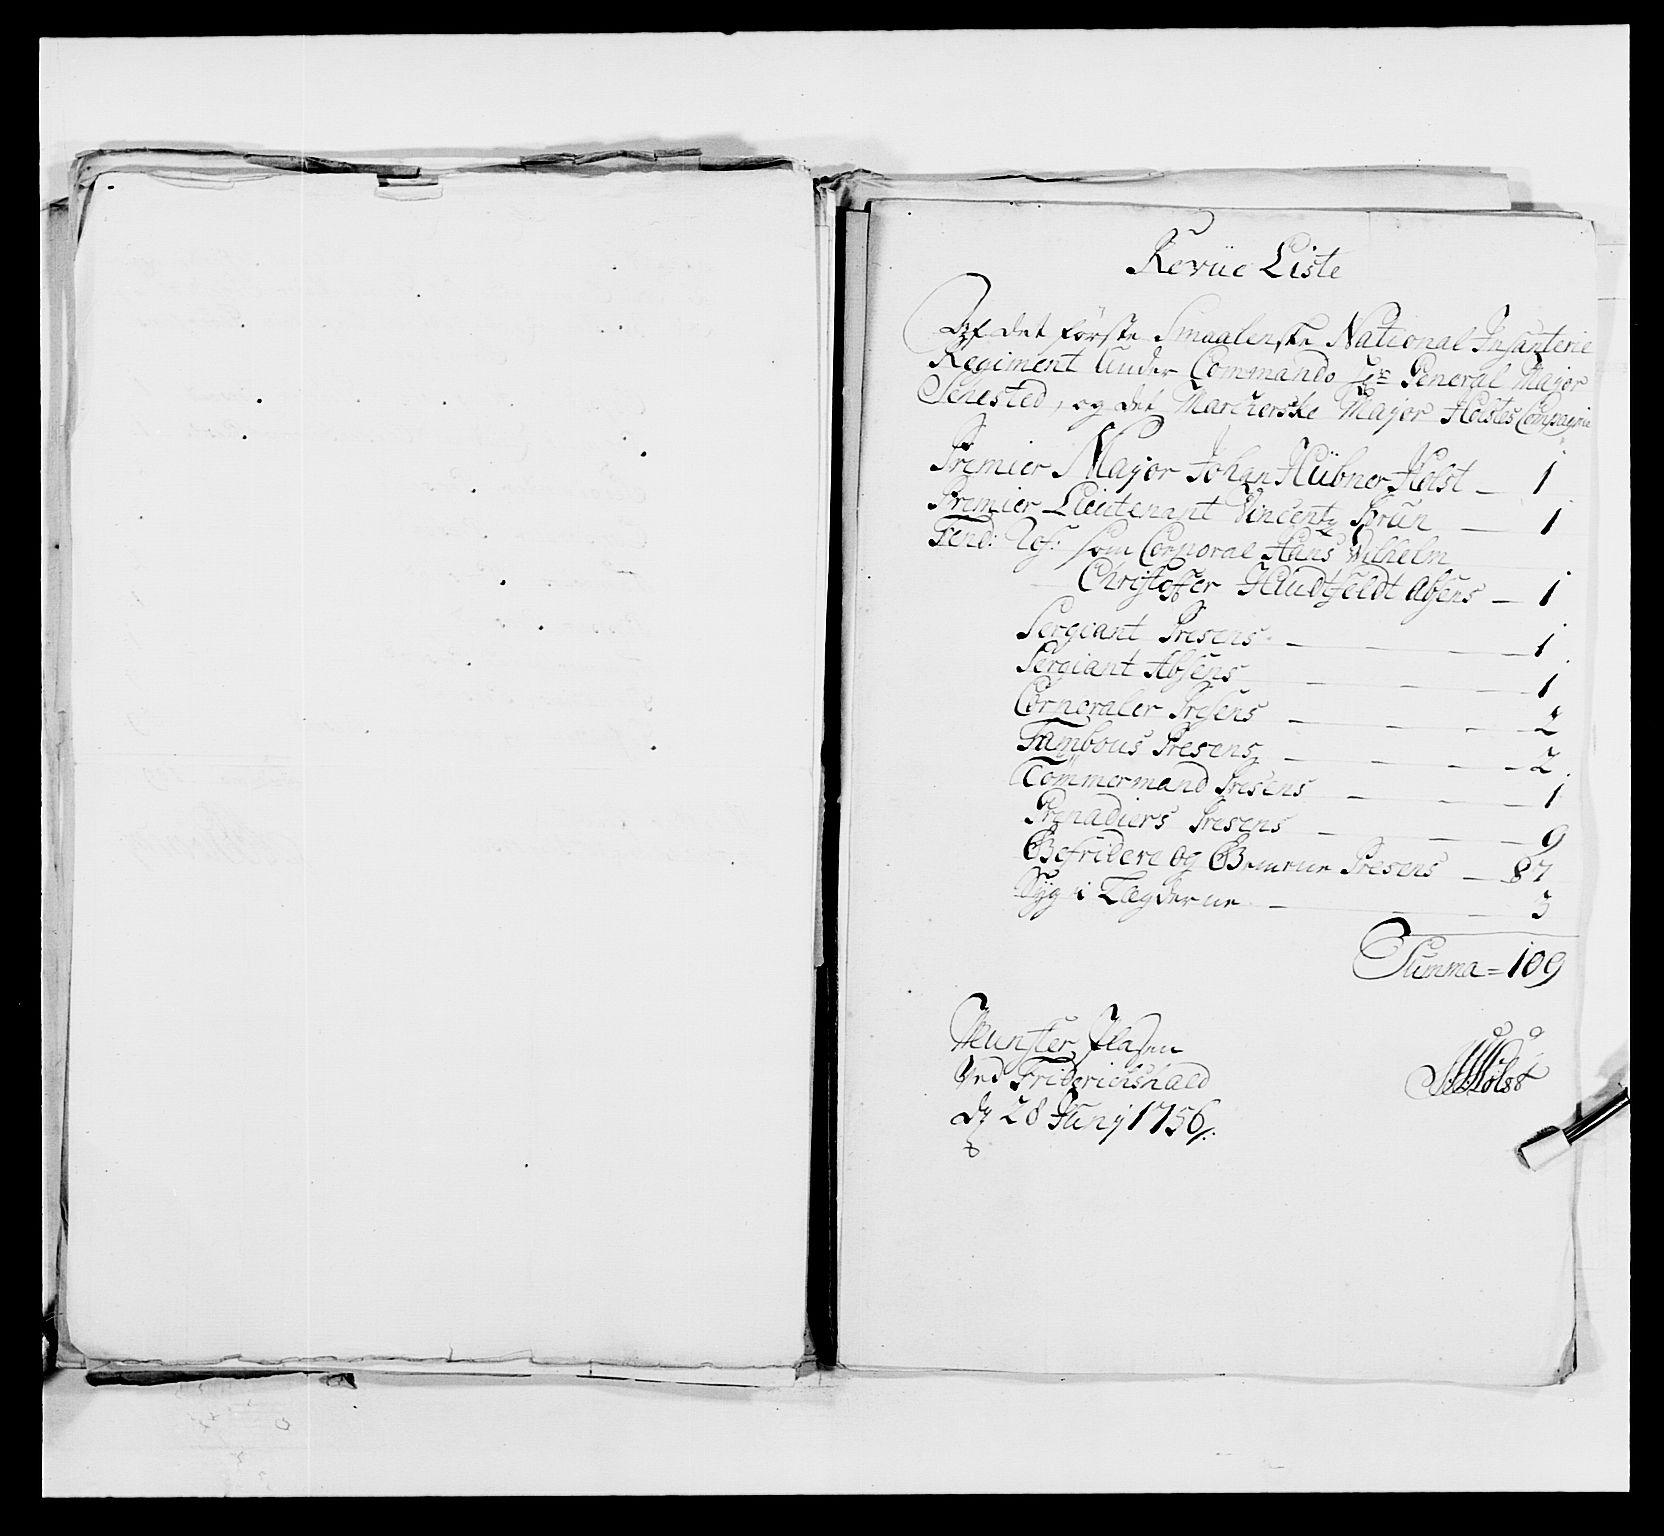 Revüe Liste
Af det förste Smaalenske National Infanterie
Regiment under Commando Hr General Major
Schested, og det Marcherske Major Holstes Compagnie
Premier Major Johan Hübner Holst — 1
Premier Lieutenant Vincentz Brun — 1
Fend: Rs: som Corporal Hans Wilhelm
Christoffer Huudtfeldt Absens — 1
Sergiant Presens — 1
Sergiant Absens — 1
Corporaler Presens — 2
Tambours Presens — 2
Tömmermand Presens — 1
Grenadiers Presens — 9
Befridere og Gemene Presens — 87
Syg i Lægderne — 3
Summa = 109
Munster Pladsen
Ved Friderichshald
d 28 Junij 1756
JHHolst